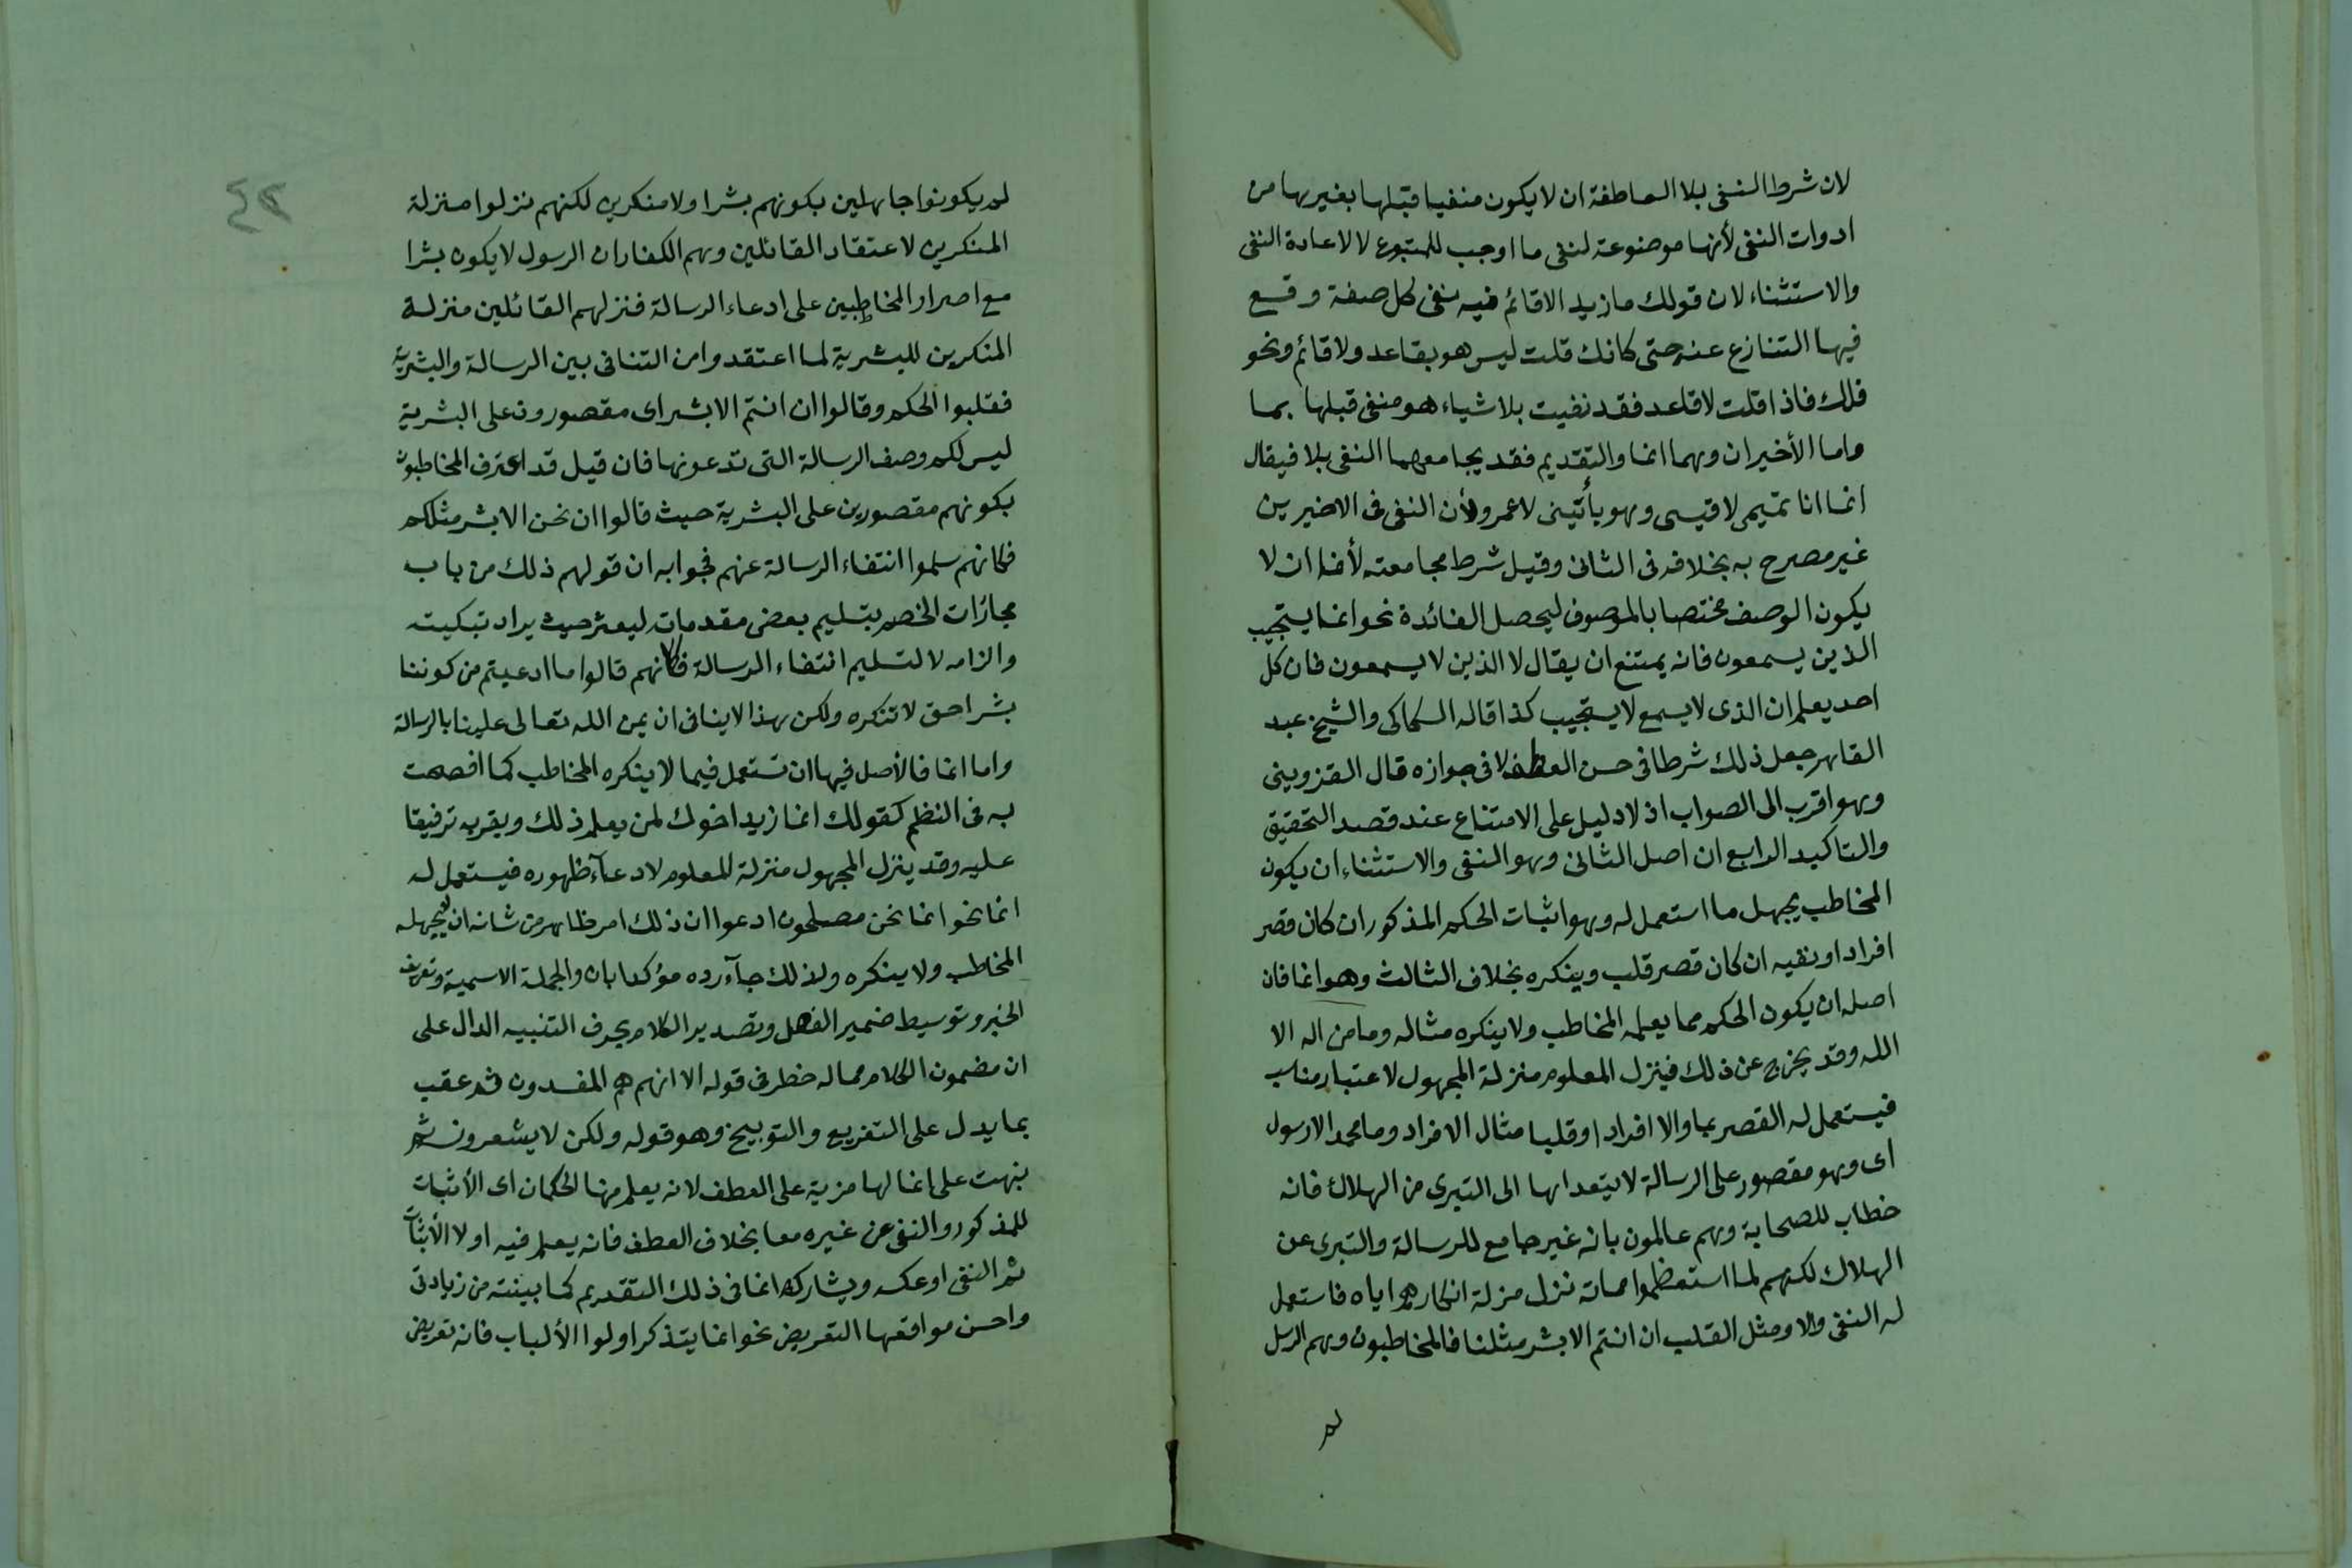 لان شرط النفى بلا العاطفة ان لا يكون منفيا قبلها بغيرها من
ادوات النفى لأنها موضوعة لنفى ما اوجب للمتبوع لا لاعادة النفى
والاستثناء لان قولك ما زيد الا قائم فيه نفى كل صفة وقع
فيها التنازع عنه حتى كانك قلت ليس هو بقاعد ولا قائم ونحو
ذلك فاذا قلت لا قاعد فقد نفيت بلا شياء هو منفى قبلها بما
واما الأخيران وهما انما والتقديم فقد يجامعهما النفى بلا فيقال
انما انا تميمى لا قيسى وهو يأتينى لا عمرو لأن النفى فى الاخيرين
غير مصرح به بخلافه فى الثانى وقيل شرط مجامعته لأنما ان لا
يكون الوصف مختصا بالموصوف ليحصل الفائدة نحو انما يستجيب
الذين يسمعون فانه يمتنع ان يقال لا الذين لا يسمعون فان كل
احد يعلم ان الذى لا يسمع لا يستجيب كذا قاله السكاكى والشيخ عبد
القاهر جعل ذلك شرطا فى حسن العطف لا فى جوازه قال القزوينى
وهو اقرب الى الصواب اذ لا دليل على الامتناع عند قصد التحقيق
والتاكيد الرابع ان اصل الثانى وهو النفى والاستثناء ان يكون
المخاطب يجهل ما استعمل له وهو اثبات الحكم المذكور ان كان قصر
افراد او نفيه ان كان قصر قلب وينكره بخلاف الثالث وهو انما فان
اصله ان يكون الحكم مما يعلمه المخاطب ولا ينكره مثاله وما من اله الا
الله وقد يخرج عن ذلك فينزل المعلوم منزلة المجهول لاعتبار مناسب
فيستعمل له القصر بما والا افرادا وقلبا مثال الافراد وما محمد الا رسول
اى وهو مقصور على الرسالة لا يتعداها الى التبرى من الهلاك فانه
خطاب للصحابة وهم عالمون بانه غير جامع للرسالة والتبرى عن
الهلاك لكنهم لما استعظموا مماته نزل منزلة انكارهم اياه فاستعمل
له النفى والا ومثل القلب ان انتم الا بشر مثلنا فالمخاطبون وهم الرسل
لم
لم يكونوا جاهلين بكونهم بشرا ولا منكرين لكنهم نزلوا منزلة
المنكرين لاعتقاد القائلين وهم الكفار ان الرسول لا يكون بشرا
مع اصرار المخاطبين على ادعاء الرسالة فنزلهم القائلين منزلة
المنكرين للبشرية لما اعتقدوا من التنافى بين الرسالة والبشرية
فقلبوا الحكم وقالوا ان انتم الا بشر اى مقصورون على البشرية
ليس لكم وصف الرسالة التى تدعونها فان قيل قد اعترف المخاطبون
بكونهم مقصورين على البشرية حيث قالوا ان نحن الا بشر مثلكم
فكانهم سلموا انتفاء الرسالة عنهم فجوابه ان قولهم ذلك من باب
مجازات الخصم بتسليم بعض مقدماته ليعثر حيث يراد تبكيته
والزامه لا لتسليم انتفاء الرسالة فكانهم قالوا ما ادعيتم من كوننا
بشرا حق لا ننكره ولكن هذا لا ينافى ان يمن الله تعالى علينا بالرسالة
واما انما فالأصل فيها ان تستعمل فيما لا ينكره المخاطب كما افصحت
به فى النظم كقولك انما زيد اخوك لمن يعلم ذلك ويقر به ترقيقا
عليه وقد ينزل المجهول منزلة المعلوم لادعآء ظهوره فيستعمل له
انما نحو انما نحن مصلحون ادعوا ان ذلك امر ظاهر من شانه ان لا يجهله
المخاطب ولا ينكره ولذلك جآء رده مؤكدا بان والجملة الاسمية وتعريف
الخبر وتوسيط ضمير الفصل وتصدير الكلام بحرف التنبيه الدال على
ان مضمون الكلام مما له خطر فى قوله الا انهم هم المفسدون ثم عقب
بما يدل على التقريع والتوبيخ وهو قوله ولكن لا يشعرون ثم
نبهت على انما لها مزية على العطف لانه يعلم منها الحكمان اى الأثبات
للمذكور والنفى عن غيره معا بخلاف العطف فانه يعلم فيه اولا الأثبات
ثم النفى او عكسه ويشاركه انما فى ذلك التقديم كما بينته من زيادتى
واحسن مواقعها التعريض نحو انما يتذكر اولوا الألباب فانه تعريض